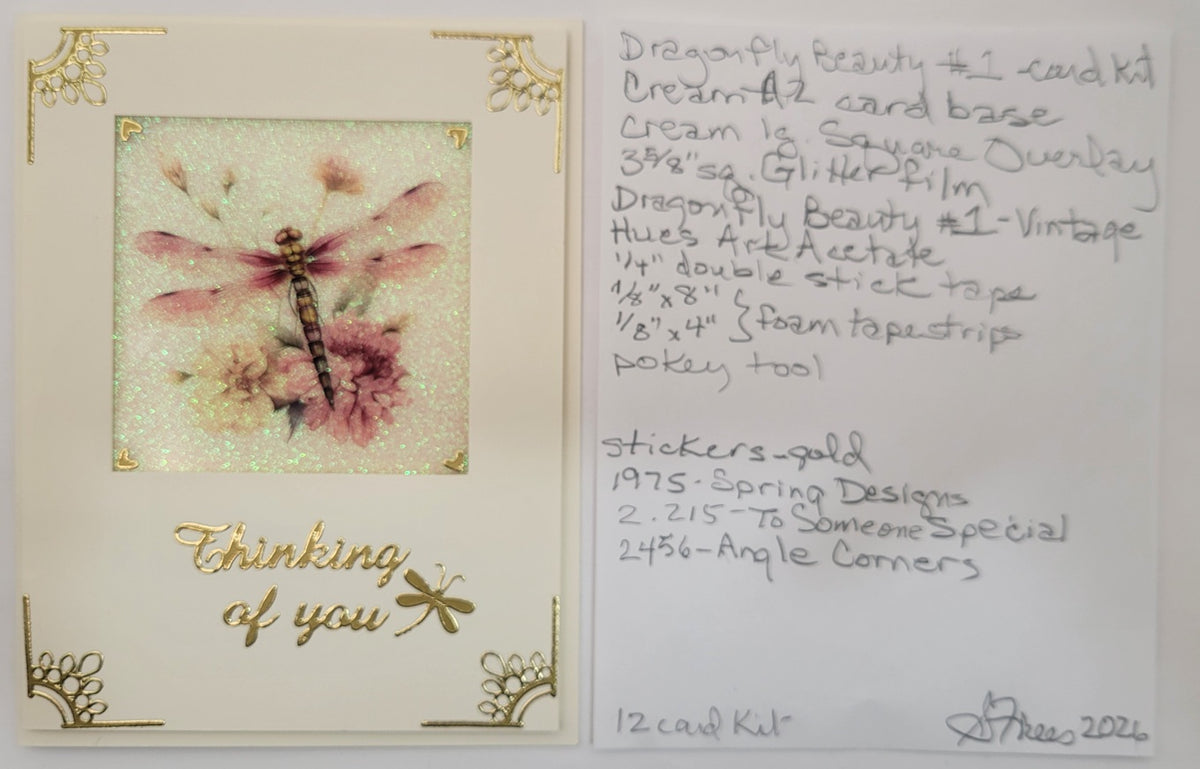 Thinking
of you
Dragonfly Beauty #1 - card kit
Cream A2 card base
cream lg. Square Overlay
3 5/8" sq. Glitter film
Dragonfly Beauty #1 - Vintage
Hues Art Acetate
1/4" double stick tape
1/8" x 8"
1/8" x 4" } foam tape strips
pokey tool
stickers - gold
1975 - Spring Designs
2.215 - To Someone Special
2456 - Angle Corners
12 card Kit
2026